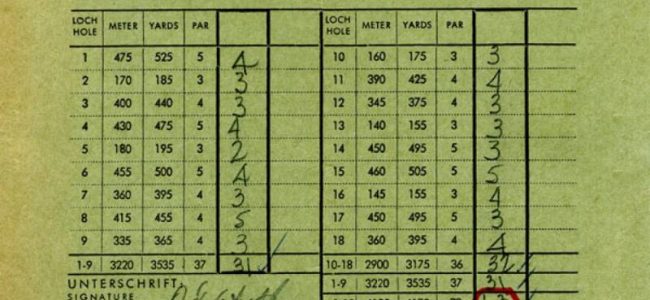 LOCH HOLE METER YARDS PAR
1 475 525 5 4
2 170 185 3 3
3 400 440 4 3
4 430 475 5 4
5 180 195 3 2
6 455 500 5 4
7 360 395 4 3
8 415 455 4 5
9 335 365 4 3
1-9 3220 3535 37 31
UNTERSCHRIFT:
SIGNATURE
LOCH HOLE METER YARDS PAR
10 160 175 3 3
11 390 425 4 4
12 345 375 4 3
13 140 155 3 3
14 450 495 5 3
15 460 505 5 5
16 145 155 3 4
17 450 495 5 3
18 360 395 4 4
10-18 2900 3175 36 32
1-9 3220 3535 37 31